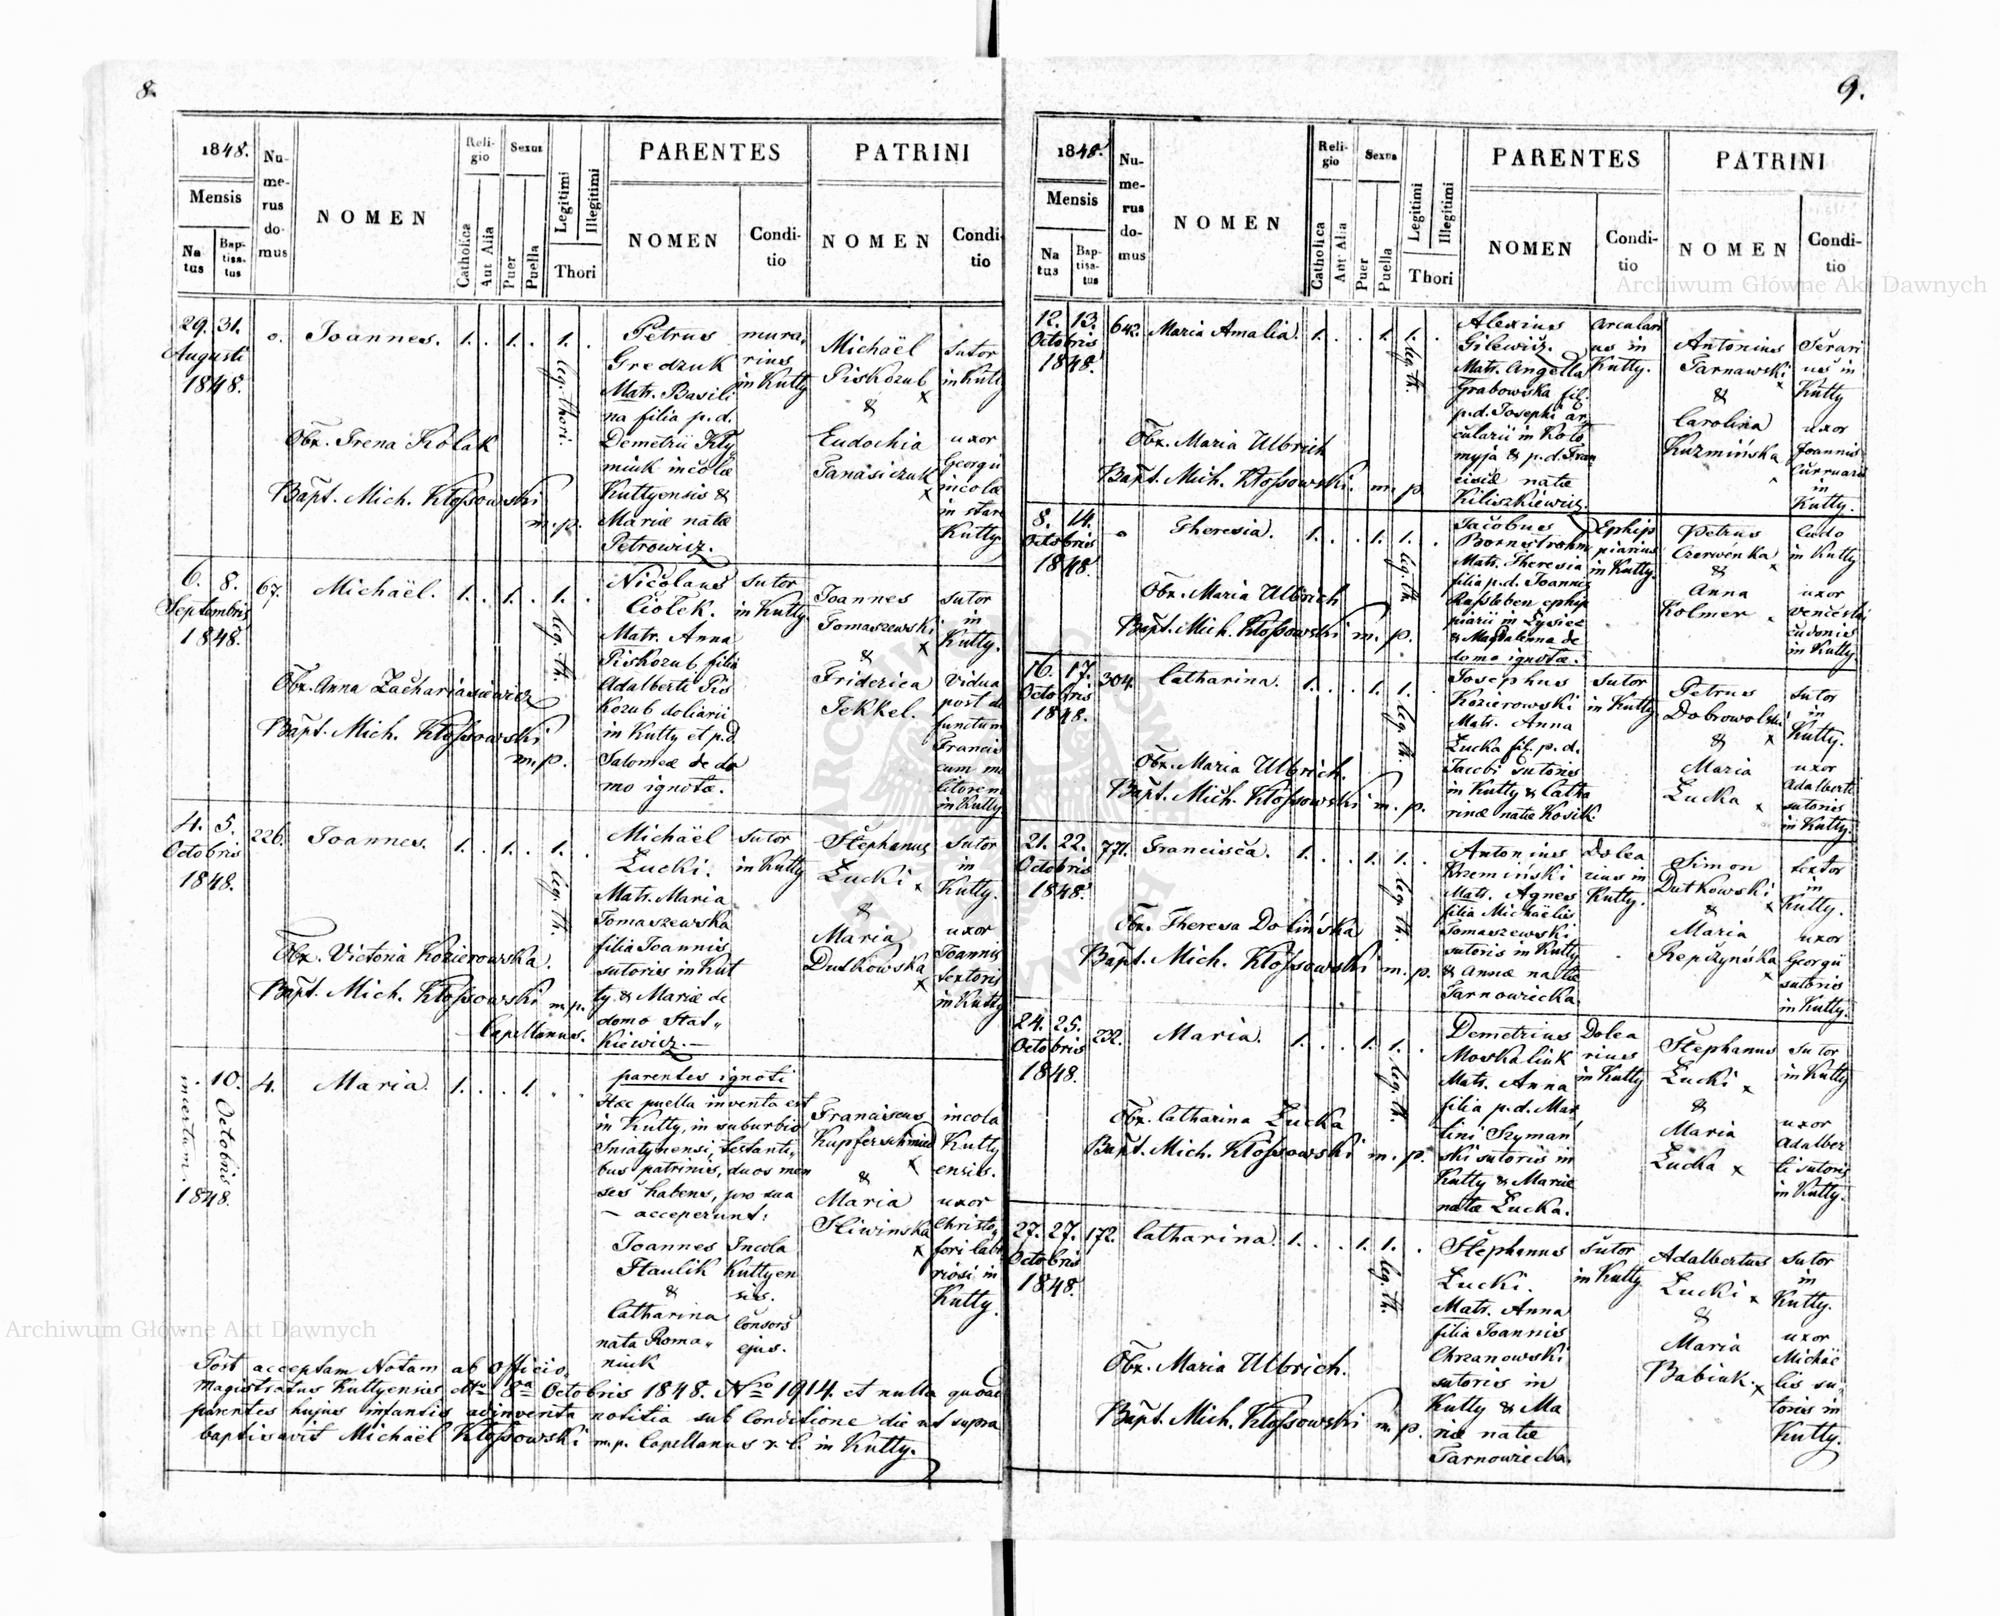 8.
1848.
Mensis
Na
tus
Bap-
tisa-
tus
Nu-
me-
rus
do-
mus
NOMEN
Reli-
gio
Catholica
Aut Alia
Sexus
Puer
Puella
Legitimi
Illegitimi
Thori
PARENTES
NOMEN
Condi-
tio
PATRINI
NOMEN
Condi
tio
29. 31.
Augusti
1848.
0.
Joannes.
1. . 1. . 1. .
leg. thori.
Obx. Irena Kolak
Bapt. Mich. Kłossowski
m.p.
Petrus
Gredzuk
Matr. Basili
na filia p.d.
Demetrii Kły
miuk incolæ
Kuttyensis &
Mariæ natæ
Petrowicz.
mura,
rius
in Kutty
Michaël
Piskozub
x
&
Eudochia
Tanasiczuk
x
Sutor
in Kutt
uxor
Georgii
incolæ
in stare
Kutty
6. 8.
Septembris
1848.
67.
Michaël.
1. . 1. . 1. .
leg. th.
Obx. Anna Zachariasiewicz
Bapt. Mich. Kłossowski
m.p.
Nicolaus
Ciołek.
Matr. Anna
Piskozub filia
Adalberti Pis
kozub doliarii
in Kutty et p.d.
Salomeæ de do
mo ignota.
Sutor
in Kutty
Joannes
Tomaszewski
x
&
Friderica
Jekkel.
Sutor
in
Kutty.
Vidua
post de
functum
Francis
cum mi
litorem
in Kutty
4. 5.
Octobris
1848.
226.
Joannes.
1. . 1. . 1. .
leg. th.
Obx. Victoria Kozierowska.
Bapt. Mich. Kłossowski m.p.
Capellanus.
Michaël
Łucki.
Matr. Maria
Tomaszewska
filia Joannis
sutoris in Kut
ty & Mariæ de
domo Stat„
Kiewicz.—
Sutor
in Kutty
Stephanus
Łucki x
&
Maria
Dutkowska
x
Sutor
in
Kutty.
uxor
Joannis
textoris
in Kutty
. 10.
incertum.
Octobris
1848.
4.
Maria.
1. . . 1. . .
parentes ignoti
Hæc puella inventa est
in Kutty, in suburbio
Sniatynensi, testanti„
bus patrinis, duos men
ses habens, pro sua
– acceperunt:
Joannes
Staulik
&
Catharina
nata Roma„
niuk
Incola
Kuttyen
sis.
Consors
ejus.
Franciscus
Kupferschmied
x
&
Maria
Sliwinska
x
incola
Kutty
ensis.
uxor
Christo,
fori labo
riosi in
Kutty.
Post acceptam Notam ab Officio,
Magistratus Kuttyensis dtto 8va Octobris 1848. Nro 1914. et nulla quoad
parentes hujus infantis adinventa notitia sub Conditione die ut supra
baptisavit Michaël Kłossowski m.p. Capellanus r. l. in Kutty.
9.
1848.
Mensis
Na
tus
Bap-
tisa-
tus
Nu-
me-
rus
do-
mus
NOMEN
Reli-
gio
Catholica
Aut Alia
Sexus
Puer
Puella
Legitimi
Illegitimi
Thori
PARENTES
NOMEN
Condi-
tio
PATRINI
NOMEN
Condi-
tio
12. 13.
Octobris
1848.
642.
Maria Amalia.
1. . . 1. 1. .
leg. th.
Obx. Maria Ulbrich
Bapt. Mich. Kłossowski. m. p.
Alexius
Gilewicz.
Matr. Angella
Grabowska fil.
p.d. Josephi ar
cularii in Koło
myja & p.d. Fran
ciscæ natæ
Kiliszkiewicz.
arculari
us in
Kutty.
Antonius
Tarnawski
x
&
Carolina
Kuzmińska
Serari
us in
Kutty
uxor
Joannis
Curruarii
in
Kutty.
8. 14.
Octobris
1848.
0
Theresia.
1. . . 1. 1. .
leg. th.
Obx. Maria Ulbrich
Bapt. Mich. Kłossowski m. p.
Jacobus
Bornestrohm
Matr. Theresia
filia p.d. Joannis
Rassleben ephip
piarii in Łysiec
& Magdalenna de
domo ignotæ.
Ephip
piarius
in Kutty.
Petrus
Czerwenka
x
&
Anna
Kolmer
Cudo
in Kutty
uxor
Venceslai
cudonis
in Kutty.
16. 17.
Octobris
1848.
304.
Catharina.
1. . . 1. 1. .
leg. th.
Obx. Maria Ulbrich.
Bapt. Mich. Kłossowski m. p.
Josephus
Kozierowski
Matr. Anna
Łucka fil. p. d.
Jacobi sutoris
in Kutty & Catha
rinæ natæ Kosik.
Sutor
in Kutty
Petrus
Dobrowolski
x
&
Maria
Łucka x
Sutor
in
Kutty.
uxor
Adalberti
sutoris
in Kutty.
21. 22.
Octobris
1848.
771.
Francisca.
1. . . 1. 1. .
leg. th.
Obx. Theresa Dolińska
Bapt. Mich. Kłossowski m. p.
Antonius
Krzemiński
Matr. Agnes
filia Michaelis
Tomaszewski
sutoris in Kutty
& Annæ natæ
Tarnowiecka
Dolea
rius in
Kutty.
Simon
Dutkowski
x
&
Maria
Repczyńska
x
textor
in
Kutty.
uxor
Georgii
sutoris
in Kutty.
24. 25.
Octobris
1848.
232.
Maria.
1. . . 1. 1. .
leg. th.
Obx. Catharina Łucka
Bapt. Mich. Kłossowski m. p.
Demetrius
Moskaliuk
Matr. Anna
filia p.d. Mar
tini Szymań
ski sutoris in
Kutty & Mariæ
natæ Łucka.
Dolea
rius
in Kutty
Stephanus
Łucki x
&
Maria
Łucka x
Sutor
in Kutty
uxor
Adalber
ti sutoris
in Kutty.
27. 27.
Octobris
1848.
172.
Catharina.
1. . . 1. 1. .
leg. th.
Obx. Maria Ulbrich.
Bapt. Mich. Kłossowski m. p.
Stephanus
Łucki.
Matr. Anna
filia Joannis
Chrzanowski
sutoris in
Kutty & Ma
riæ natæ
Tarnowiecka.
Sutor
in Kutty
Adalbertus
Łucki x
&
Maria
Babiuk. x
Sutor
in
Kutty.
uxor
Michaë
lis su„
toris in
Kutty.
Archiwum Główne Akt Dawnych
Archiwum Główne Akt Dawnych